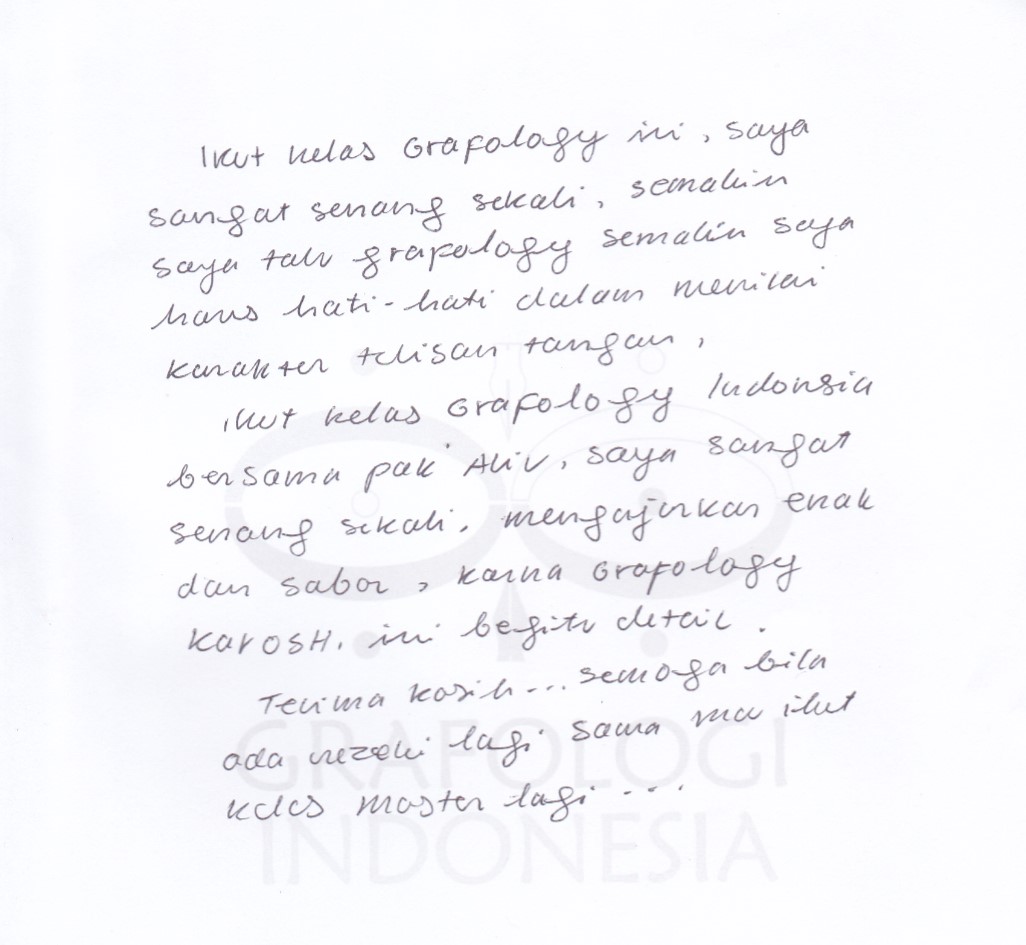 Ikut kelas Grafology ini, saya
sangat senang sekali, semakin
saya tau grafology semakin saya
harus hati-hati dalam menilai
karakter tulisan tangan,
ikut kelas Grafology Indonsia
bersama pak Aliv, saya sangat
senang sekali, mengajarkan enak
dan sabar, karna Grafology
KAROSH. ini begitu detail.
Terima kasih... semoga bila
ada rezeki lagi sama mau ikut
kelas master lagi ...
GRAFOLOGI
INDONESIA